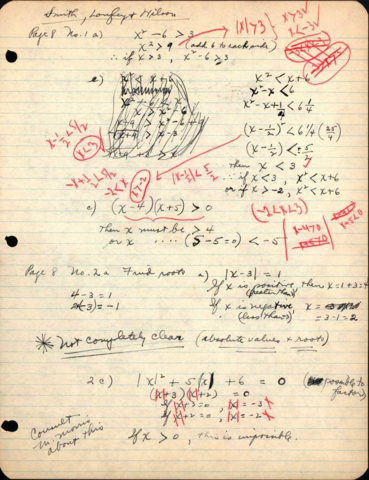 Smith, Longley &
Page 8 No. 1 a) x² - 6 > 3
x² > 9 (add 6 to each side)
∴ if x > 3, x² - 6 > 3
|x| > 3
x > 3 or
x < -3
x² < x + 6
x² - x < 6
x² - x + 1/4 < 6 1/4
(x - 1/2)² < 6 1/4 (25/4)
(x - 1/2) < 5/2
then x < 3
∴ if x < 3, x² < x + 6
or if x > -2, x² < x + 6
x - 1/2 < 5/2
x < 3
-x + 1/2 < 5/2
-2 < x
x > -2
|x - 1/2| < 5/2
(-2 < x < 3)
c) (x - 4)(x + 5) > 0
Then x must be > 4
or x .... (5 - 5 = 0) < -5
x - 4 > 0
Page 8 No. 2 a Find roots a) |x - 3| = 1
If x is positive, then x = 1 + 3 = 4
(greater than)
4 - 3 = 1
If x is negative x =
(less than) = 3 - 1 = 2
* Not completely clear (absolute values & roots)
2 c) |x|² + 5|x| + 6 = 0 (possible to factor)
(x + 3)(x + 2) = 0
If x + 3 = 0, x = -3
If x + 2 = 0, x = -2
If x > 0, this is impossible.
Consult
about this